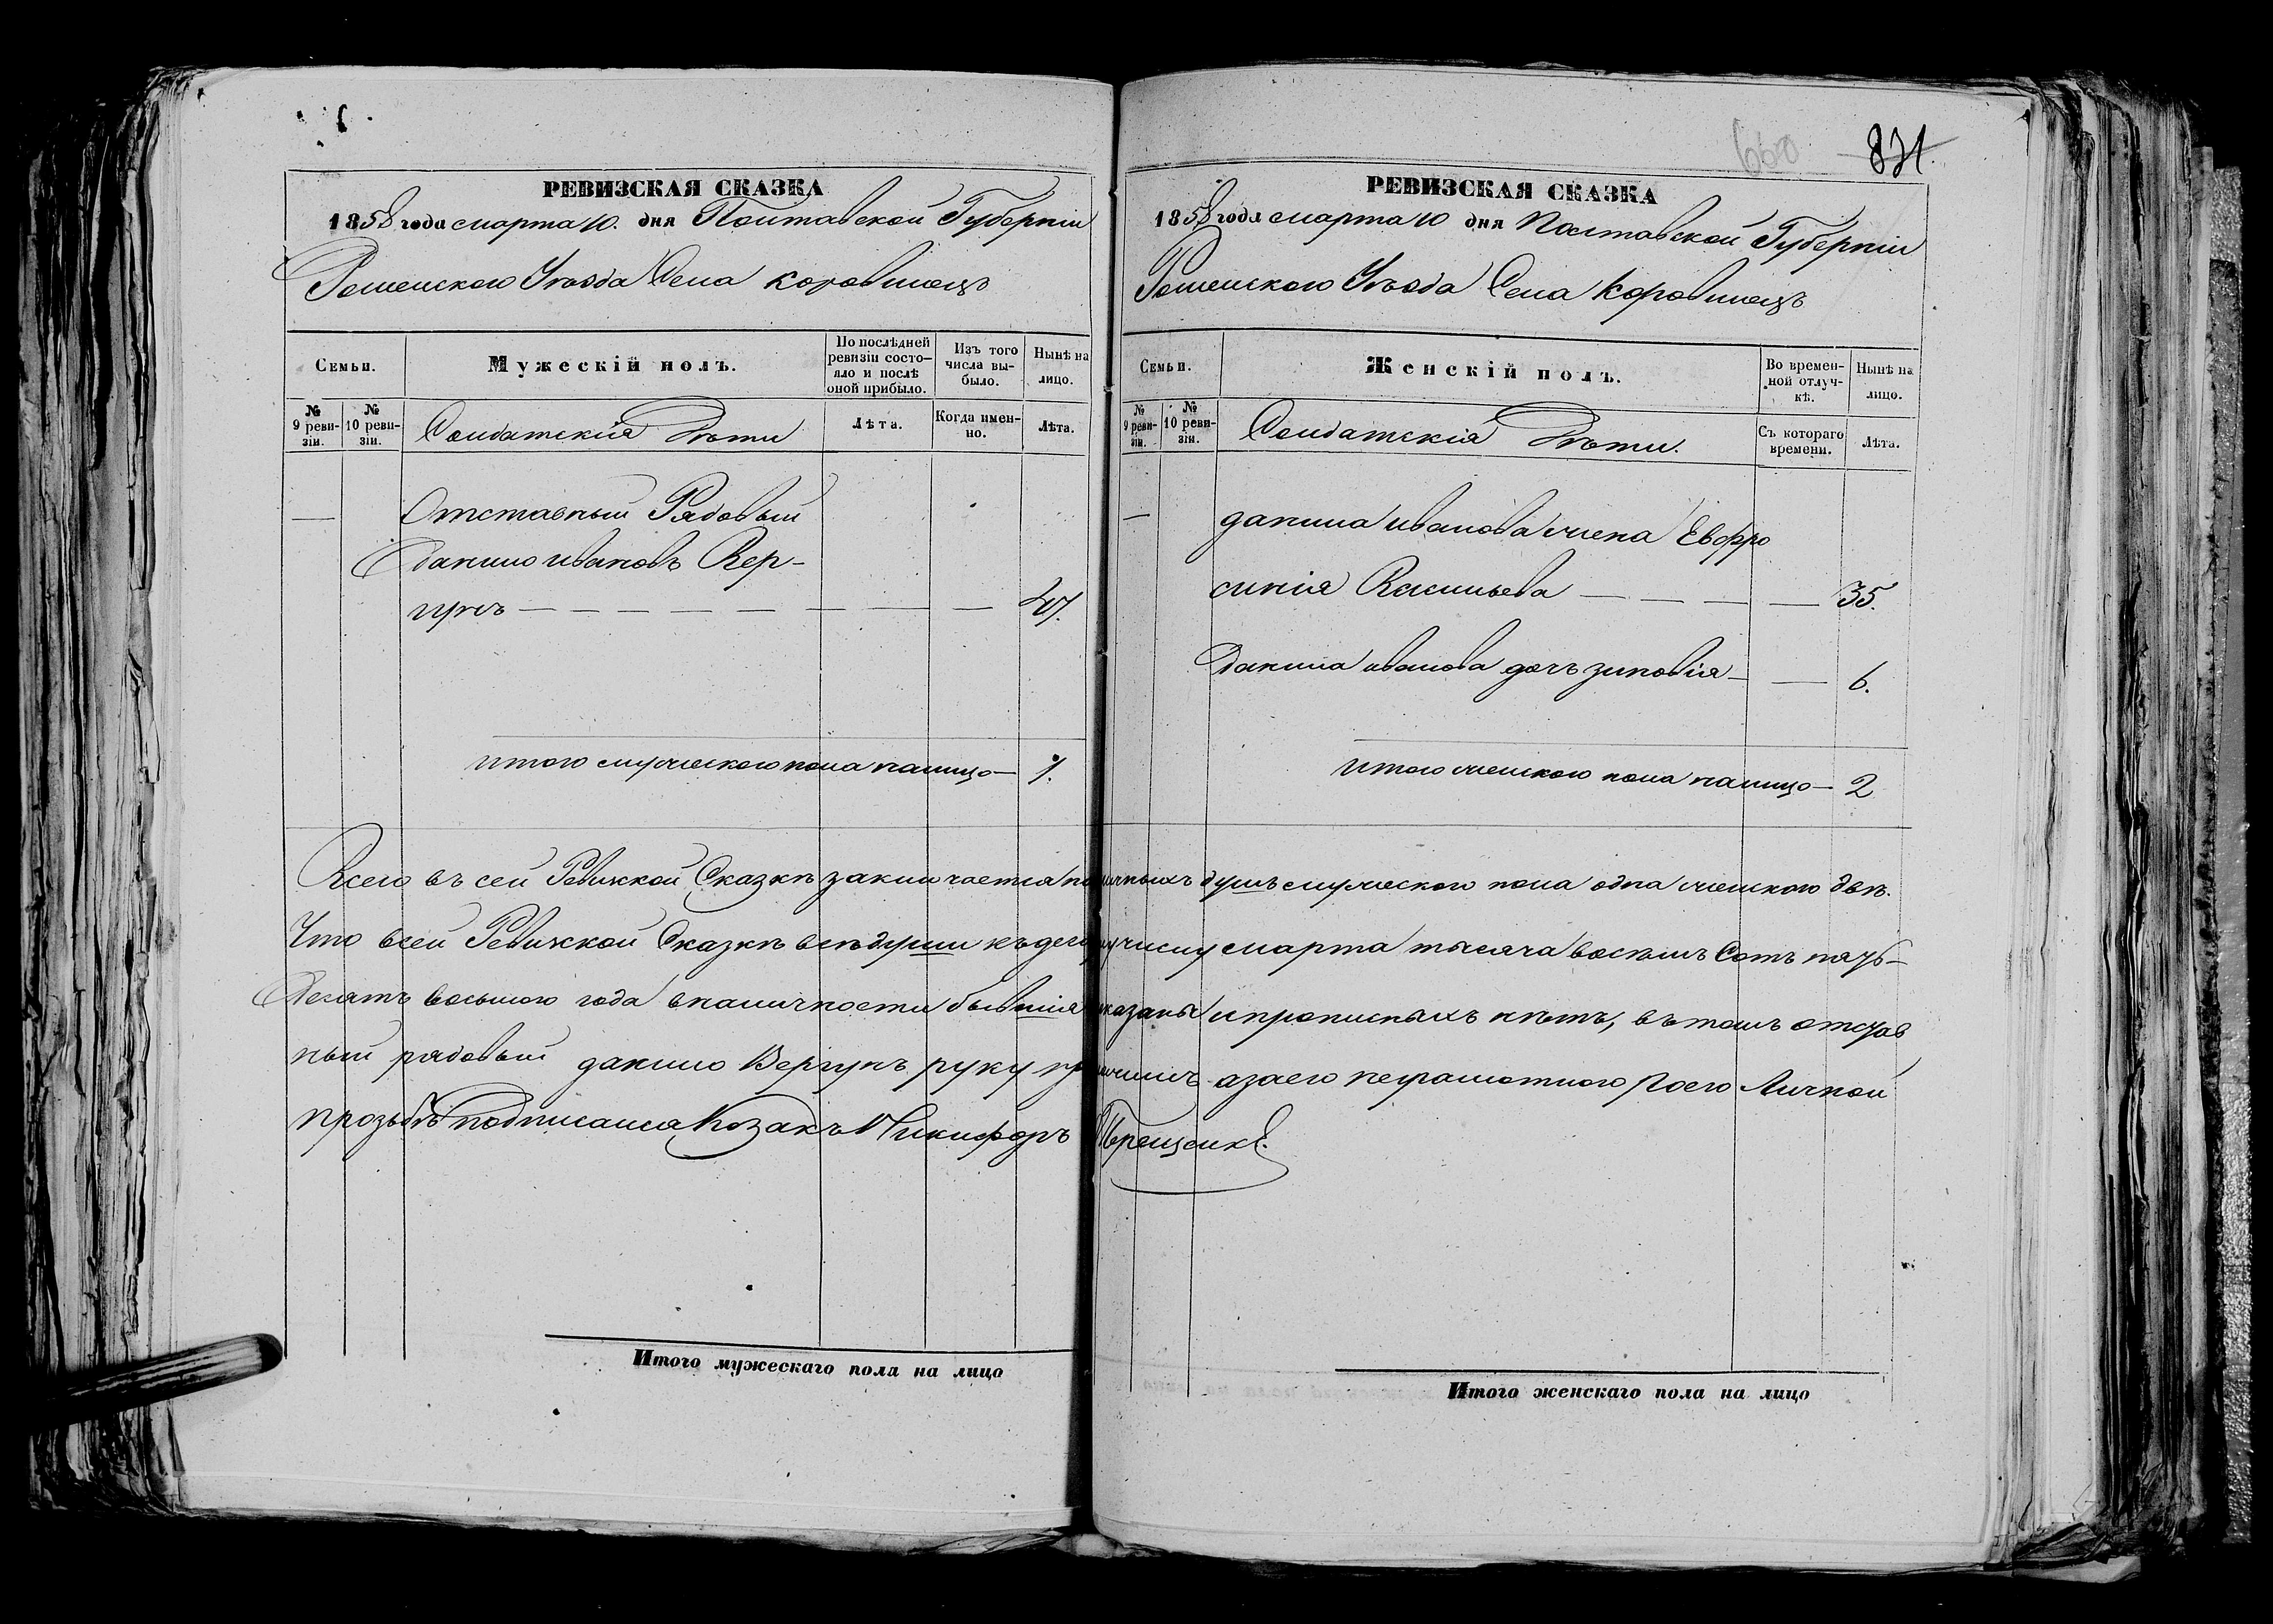 660 831
РЕВИЗСКАЯ СКАЗКА
1858 года марта 10. дня Полтавской Губерніи
Роменского Уѣзда Села Коровинецъ
Семьи.
Мужескій полъ.
По послѣдней ревизіи состояло и послѣ оной прибыло.
Изъ того числа выбыло.
Нынѣ на лицо.
№ 9 ревизіи.
№ 10 ревизіи.
Солдатскія Дѣти
Лѣта.
Когда именно.
Лѣта.
Отставный Рядовый
Данило Ивановъ Вер-
гунъ — — — — — — — — 47.
итого мужеского пола налицо — 1.
РЕВИЗСКАЯ СКАЗКА
1858 года марта 10 дня Полтавской Губерніи
Роменского Уѣзда Села Коровинецъ
Семьи.
Женскій полъ.
Во временной отлучкѣ.
Нынѣ на лицо.
№ 9 ревизіи.
№ 10 ревизіи.
Солдатскія Дѣти.
Съ котораго времени.
Лѣта.
данила иванова жена Евфро
синія Васильева — — — — — 35.
Данила иванова дочь зиновія — — 6.
итого женского пола налицо — 2
Всего въ сей Ревижской Сказкѣ заключается наличныхъ душъ мужеского пола одна женского двѣ.
Что всей Ревижской Сказкѣ всѣ души къ числу марта тысяча восѣмъ Сотъ пять-
Десятъ восьмого года вналичности бывшія показаны и прописныхъ нѣтъ, въ томъ отстав
ный рядовый данило Вергунъ руку приложилъ азаего неграмотного поего Личной
прозьбѣ подписался Козакъ Никифоръ
Итого мужескаго пола на лицо
Итого женскаго пола на лицо